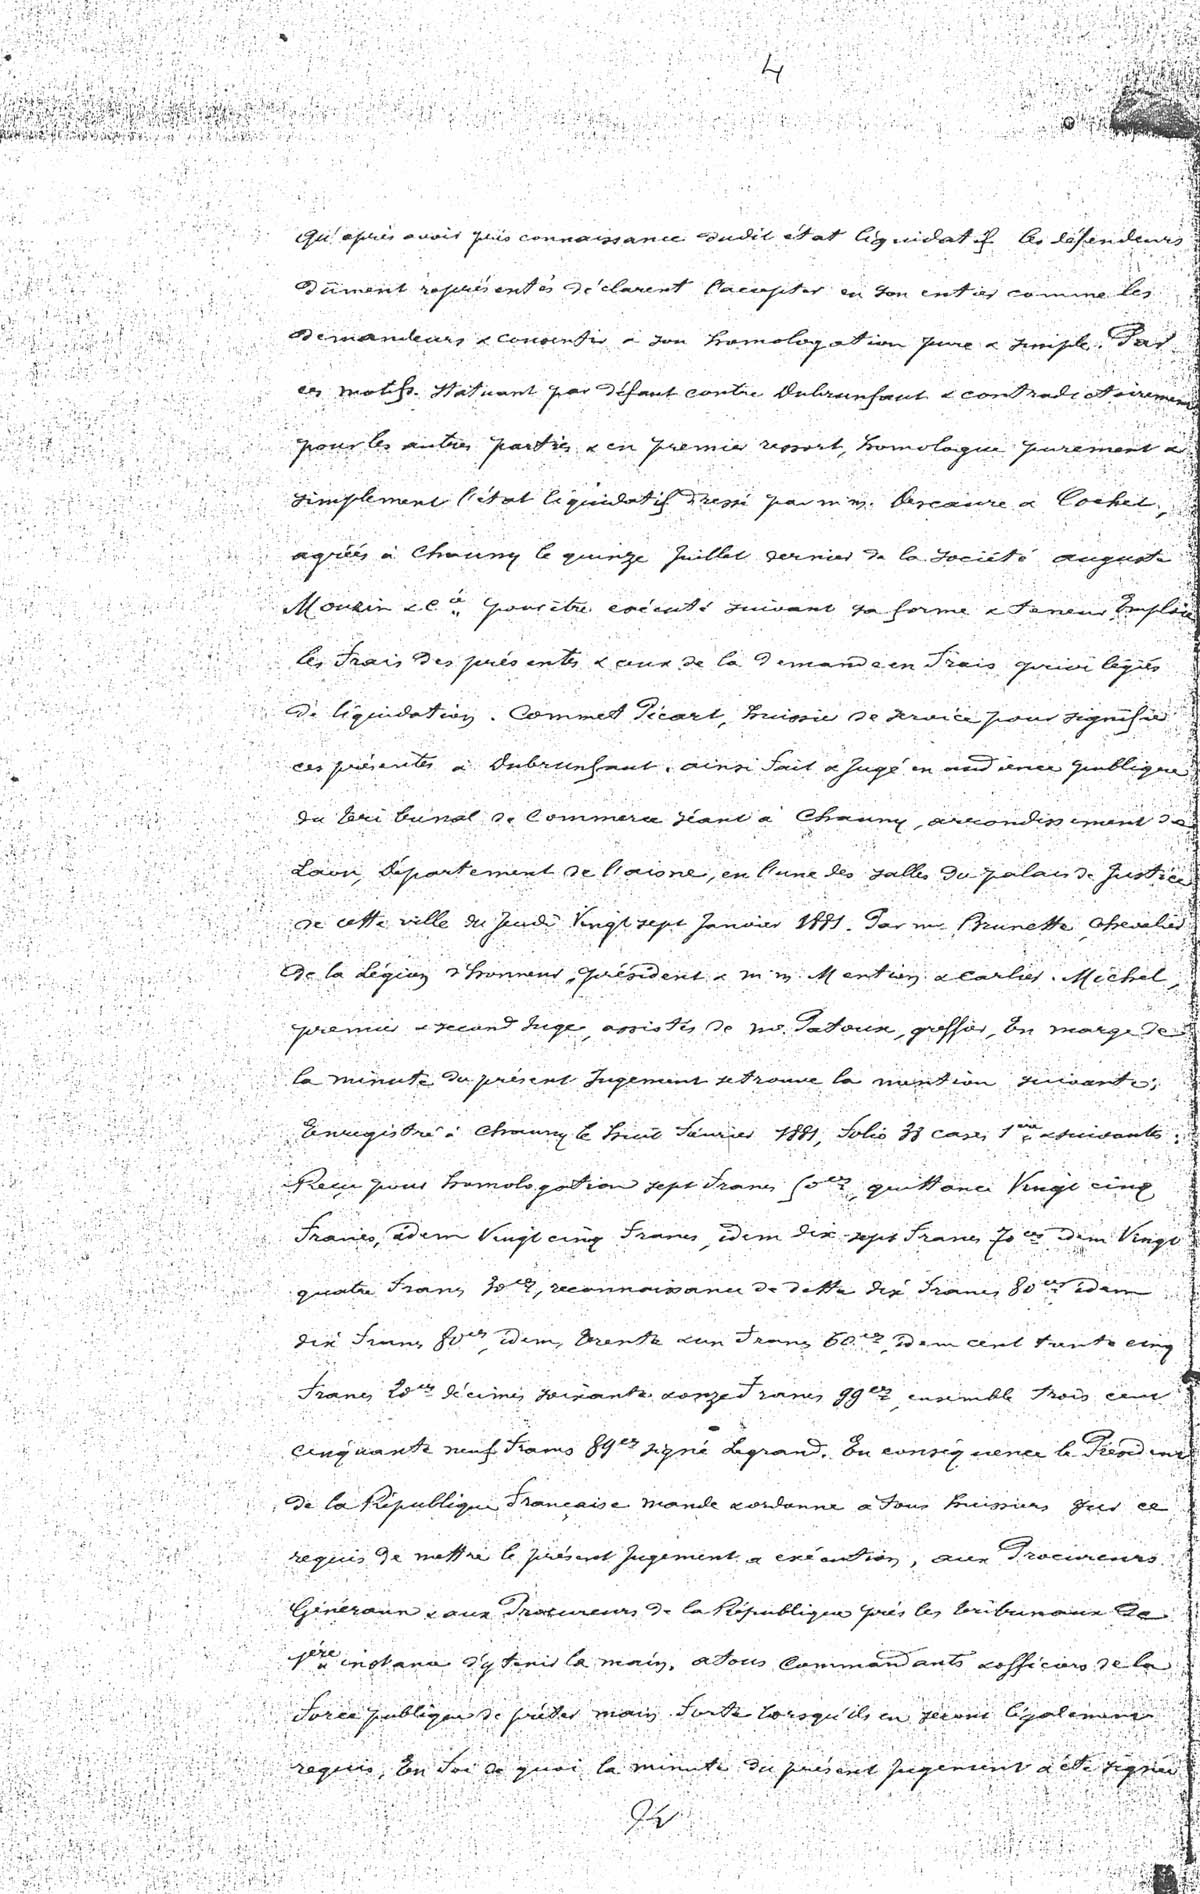 4
qu'après avoir pris connaissance dudit état liquidatif les défendeurs
dûment représentés déclarent l'accepter en son entier comme les
demandeurs & consentir à son homologation pure & simple. Par
ces motifs. Statuant par défaut contre Dubrunfaut & contradictoirement
pour les autres parties & en premier ressort, homologue purement &
simplement l'état liquidatif dressé par m m. Descaure & Cochet,
agréés à Chauny le quinze Juillet dernier de la société auguste
Mouzin & Cie pour être exécuté suivant sa forme & teneur Emploie
les frais des présentes & ceux de la demande en frais privilégiés
de liquidation. Commet Picart, huissier de service pour signifier
ces présentes à Dubrunfaut. ainsi fait & jugé en audience publique
du tribunal de Commerce séant à Chauny, arrondissement de
Laon, Département de l'aisne, en l'une des salles du palais de Justice
de cette ville du Jeudi Vingt sept Janvier 1881. Par mr Brunette, chevalier
de la Légion d'honneur, président & m m Mention & Carlier. Michel,
premier & second Juge, assistés de me Patoux, greffier, En marge de
la minute du présent Jugement se trouve la mention suivante:
Enregistré à Chauny le huit février 1881, folio 33 cases 1ère & suivantes.
Reçu pour homologation sept francs 50ces, quittance Vingt cinq
francs, idem Vingt cinq francs, idem dix sept francs 70ces idem Vingt
quatre francs 30ces, reconnaissance de dette dix francs 80ces idem
dix francs 80ces, idem, trente & un francs 60ces, idem cent trente cinq
francs 20ces décimes soixante & onze francs 99ces ensemble trois cent
cinquante neuf francs 89ces signé Legrand. En conséquence le Président
de la République française mande & ordonne à tous huissiers sur ce
requis de mettre le présent Jugement à exécution, aux Procureurs
Généraux & aux Procureurs de la République près les tribunaux de
1ère instance d'y tenir la main, à tous Commandants & officiers de la
force publique de prêter main forte lorsqu'ils en seront légalement
requis, En foi de quoi la minute du présent Jugement a été signée